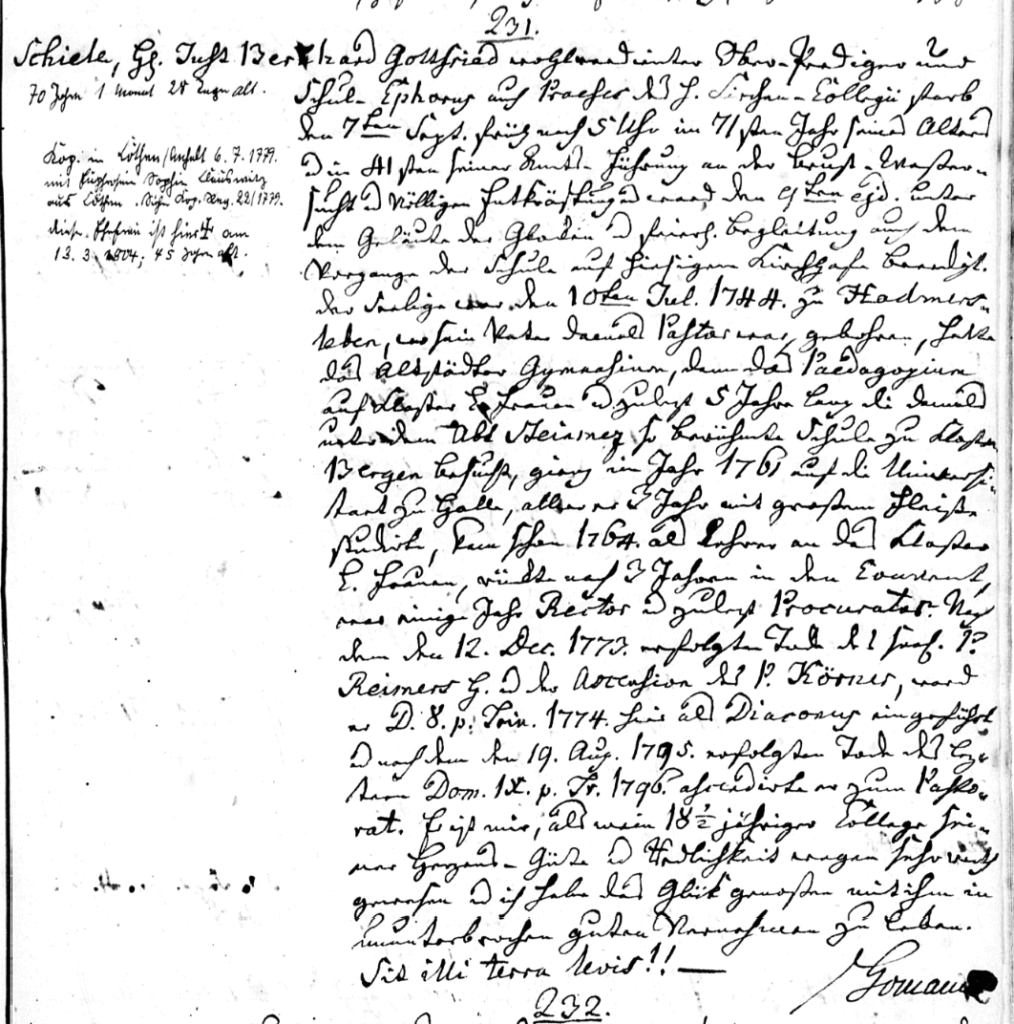 231.
Schiele, H. Just Bernhard Gottfried wohlverdienter Ober-Prediger und
70 Jahre 1 Monat 28 Tage alt.
Schul-Ephorus auch Praeses des h. Kirchen-Collegii starb
den 7ten Sept. früh nach 5 Uhr im 71sten Jahr seines Alters
u in 41sten seiner Amts-Führung an der Brust-Waßer-
sucht u völligen Entkräftung u ward den 9ten ejd. unter
dem Geläute der Glocken u feierl. Begleitung auch dem
Vorgange der Schule auf hiesigem Kirchhofe beerdigt.
Kop. in Cöthen/Anhalt 6. 7. 1779.
mit Sophie Clauswitz
aus Cöthen. Siehe Kop. Reg. 22/1779.
diese Ehefrau ist hier † am
13. 3. 1804, 45 Jahre alt.
der Seelige war den 10ten Jul. 1744. zu Hadmers-
leben, wo sein Vater damals Pastor war, gebohren, hatte
das Altstädter Gymnasium, dann das Paedagogium
auf Kloster L. Frauen u zulezt 5 Jahre lang die damals
unter dem Abt Steinmez so berühmte Schule zu Kloster
Bergen besucht, gieng im Jahr 1761 auf die Universi-
taet zu Halle, allwo er 3 Jahr mit großem Fleiße
studirte, kam schon 1764. als Lehrer an das Kloster
L. Frauen, rückte nach 3 Jahren in den Convent,
war einige Jahr Rector u zulezt Procurator. Nach
dem den 12. Dec. 1773. erfolgten Tode des P.
Reimers H. u der Ascension des P. Körner, ward
er D. 8. p. Trin. 1774. hier als Diaconus eingeführt
u nach dem den 19. Aug. 1795. erfolgten Tode des Lez-
tern Dom. IX. p. Tr. 1796. ascendirte er zum Pasto-
rat. Er ist mir, als mein 18½ jähriger College sei-
ner Herzens-Güte u Redlichkeit wegen sehr werth
gewesen u ich habe das Glück genoßen mit ihm in
ununterbrochen guten Vernehmen zu leben.
Sit illi terra levis!! —
232.